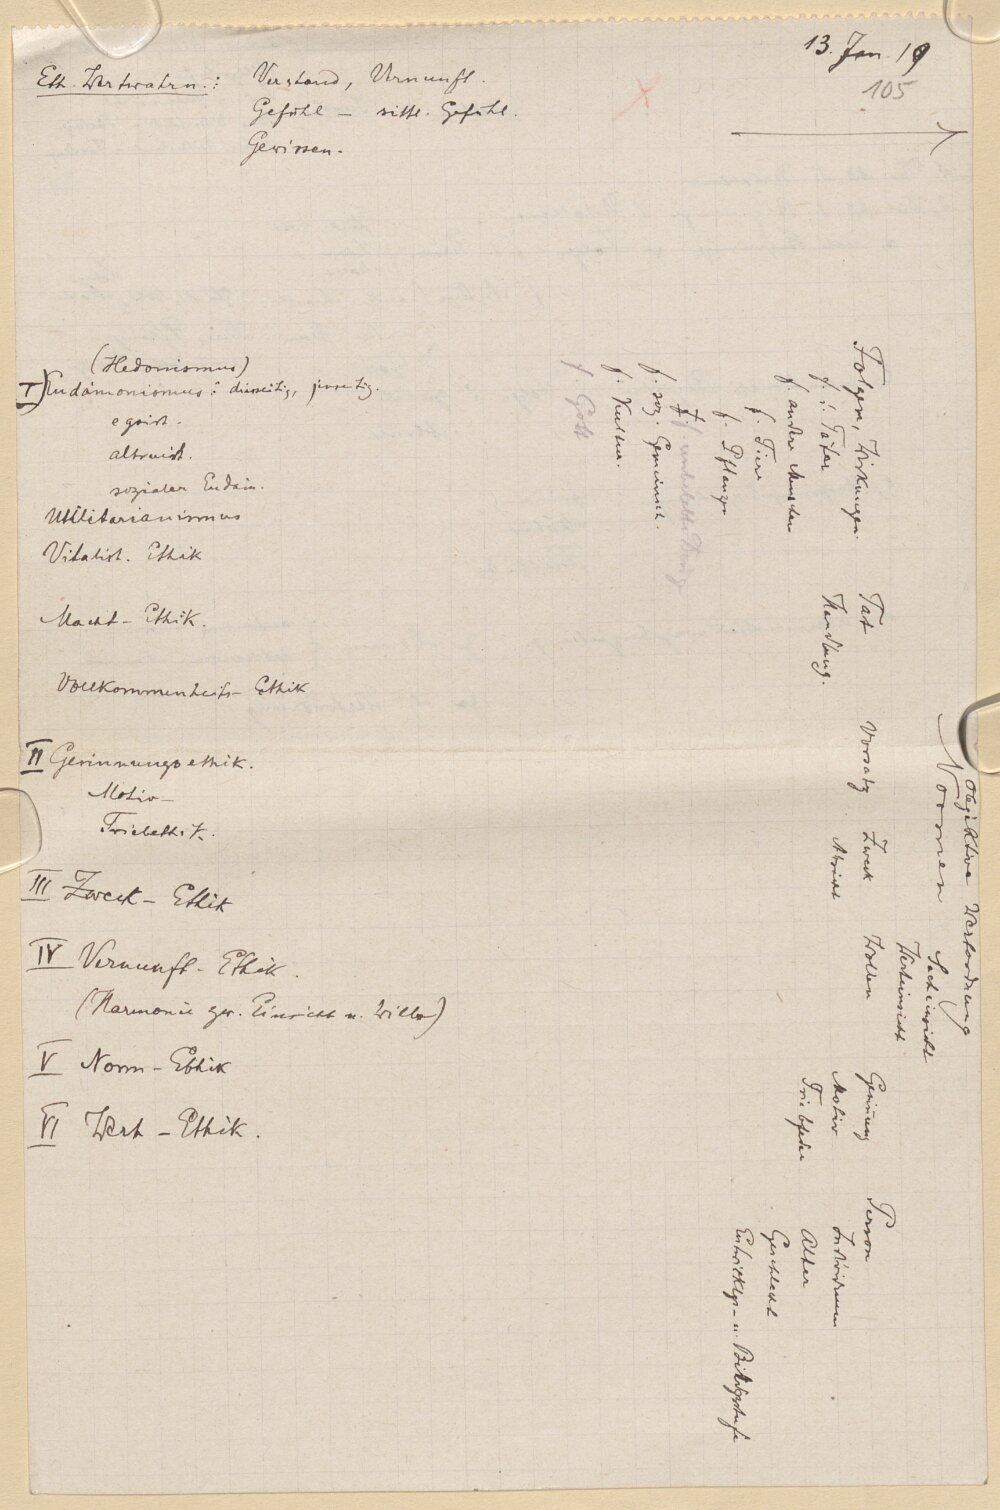 13. Jan. 19
105
Eth. Wertwahrn.: Verstand, Vernunft.
Gefühl – sittl. Gefühl.
Gewissen.
(Hedonismus)
I) Eudämonismus: diesseitig, jenseitig.
egoist.
altruist.
sozialer Eudäm.
Utilitarianismus
Vitalist. Ethik
Macht-Ethik.
Vollkommenheits-Ethik
II Gesinnungsethik.
Motiv-
Triebethik.
III Zweck-Ethik
IV Vernunft-Ethik.
(Harmonie zw. Einsicht u. Wille)
V Norm-Ethik
VI Wert-Ethik.
objektive Wertordnung
Normen
Sacheinsicht
Werteinsicht
Folgen, Wirkungen.
f. d. Täter
f. andere Menschen
f. Tiere
f. Pflanzen
f. unbelebte Dinge
f. soz. Gemeinsch.
f. Kultur.
f. Gott
Tat
Handlung.
Vorsatz
Zweck
Absicht
Wollen
Gesinnung
Motiv
Triebfeder
Person
Individuum
Alter
Geschlecht
Entwicklgs- u. Bildgsstufe